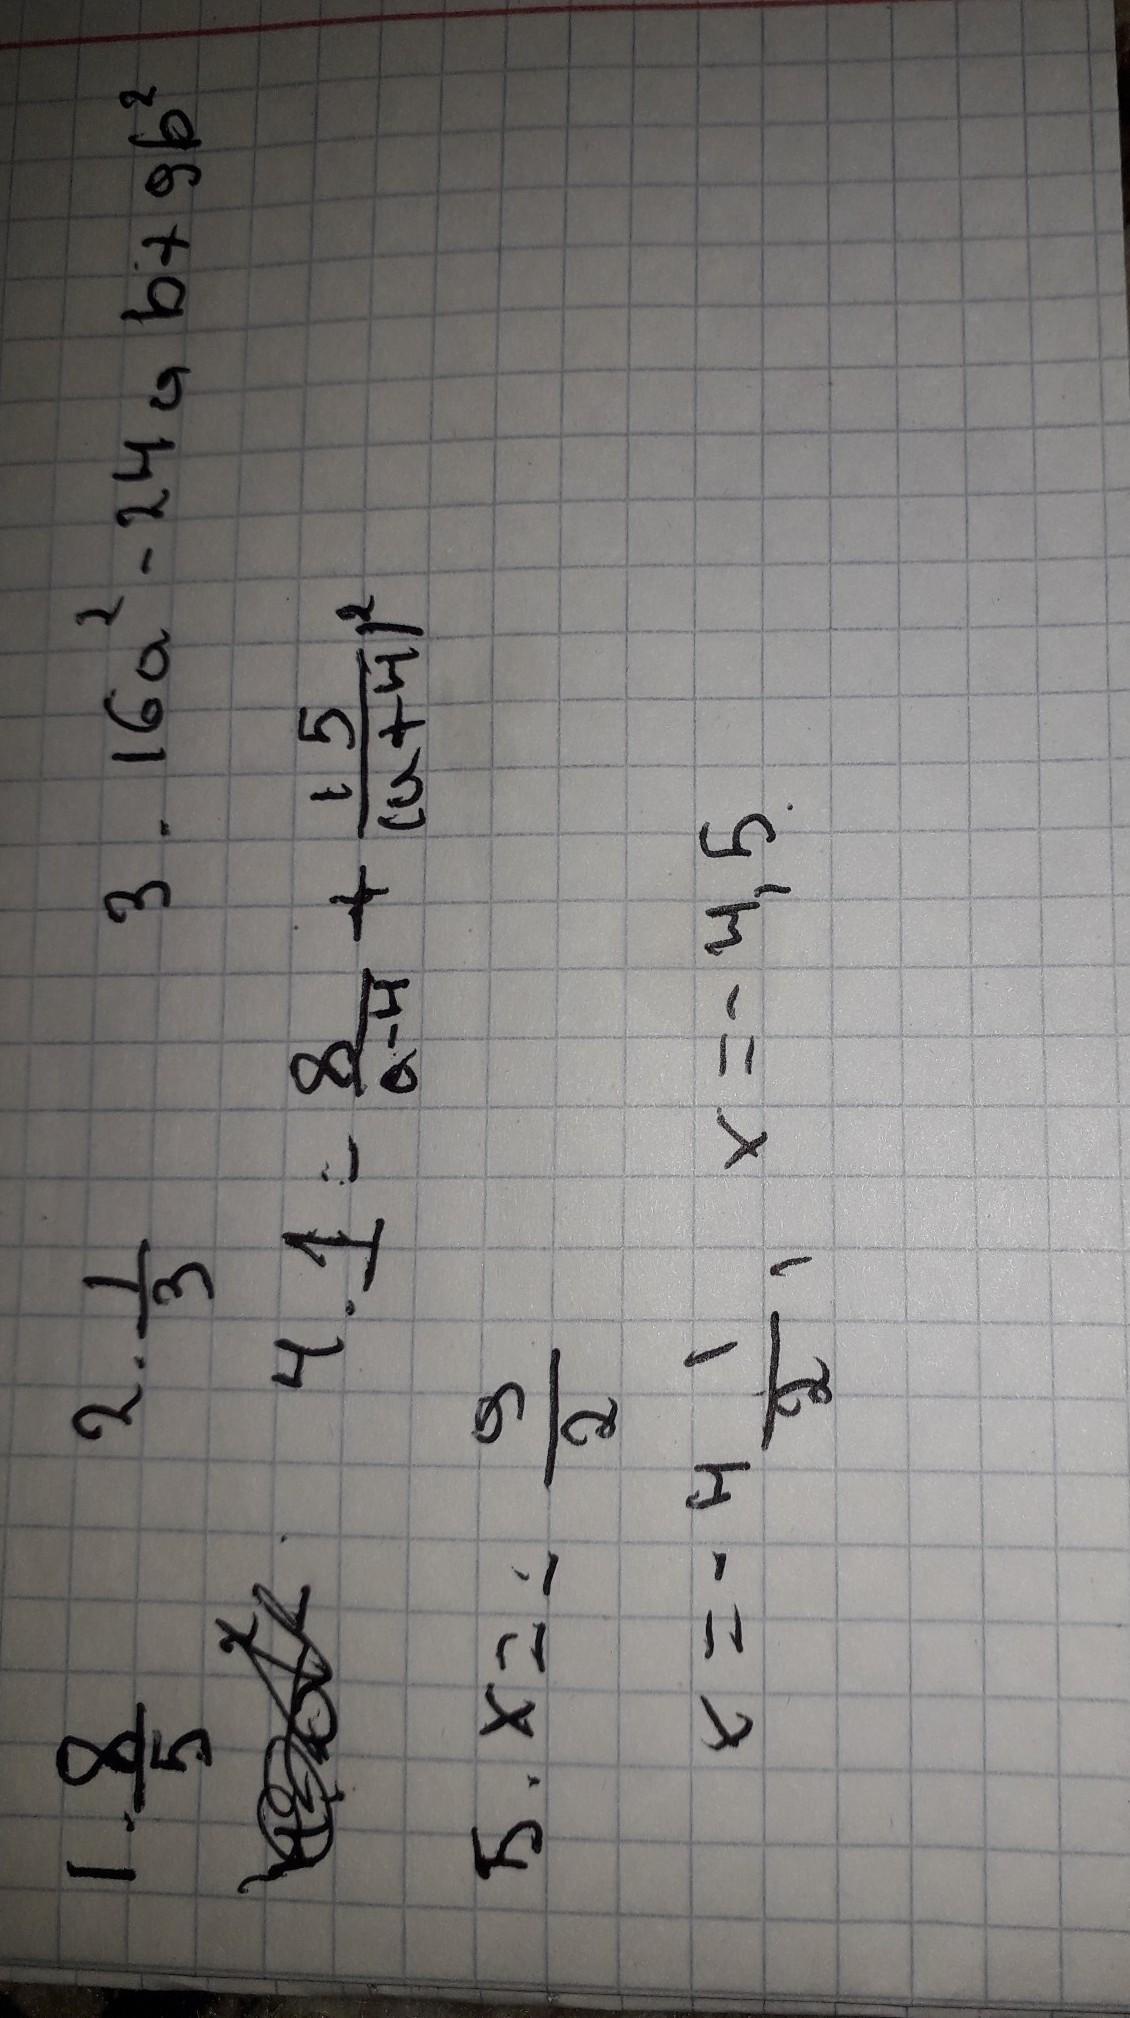 1. 8/5 2. 1/3 3. 16a² - 24ab + 9b²
4. 1 = 8/(a-4) + 15/(a+4)²
5. x = - 9/2
x = - 4 1/2, x = - 4,5.